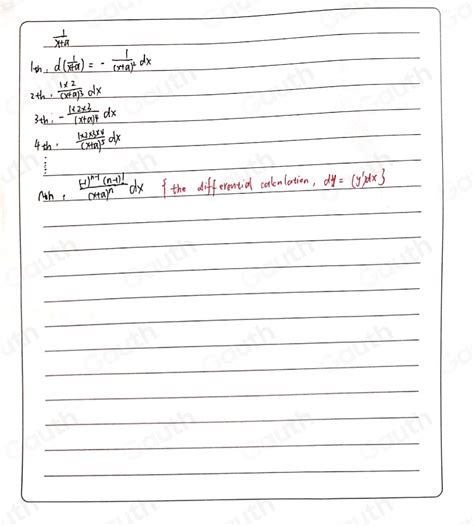 1/(x+a)
1th. d(1/(x+a)) = - 1/(x+a)² dx
2th. (1×2)/(x+a)³ dx
3th. - (1×2×3)/(x+a)⁴ dx
4th. (1×2×3×4)/(x+a)⁵ dx
⋮
nth. ((-1)ⁿ⁻¹ (n-1)!)/(x+a)ⁿ dx { the differential calculation, dy = (y')dx }